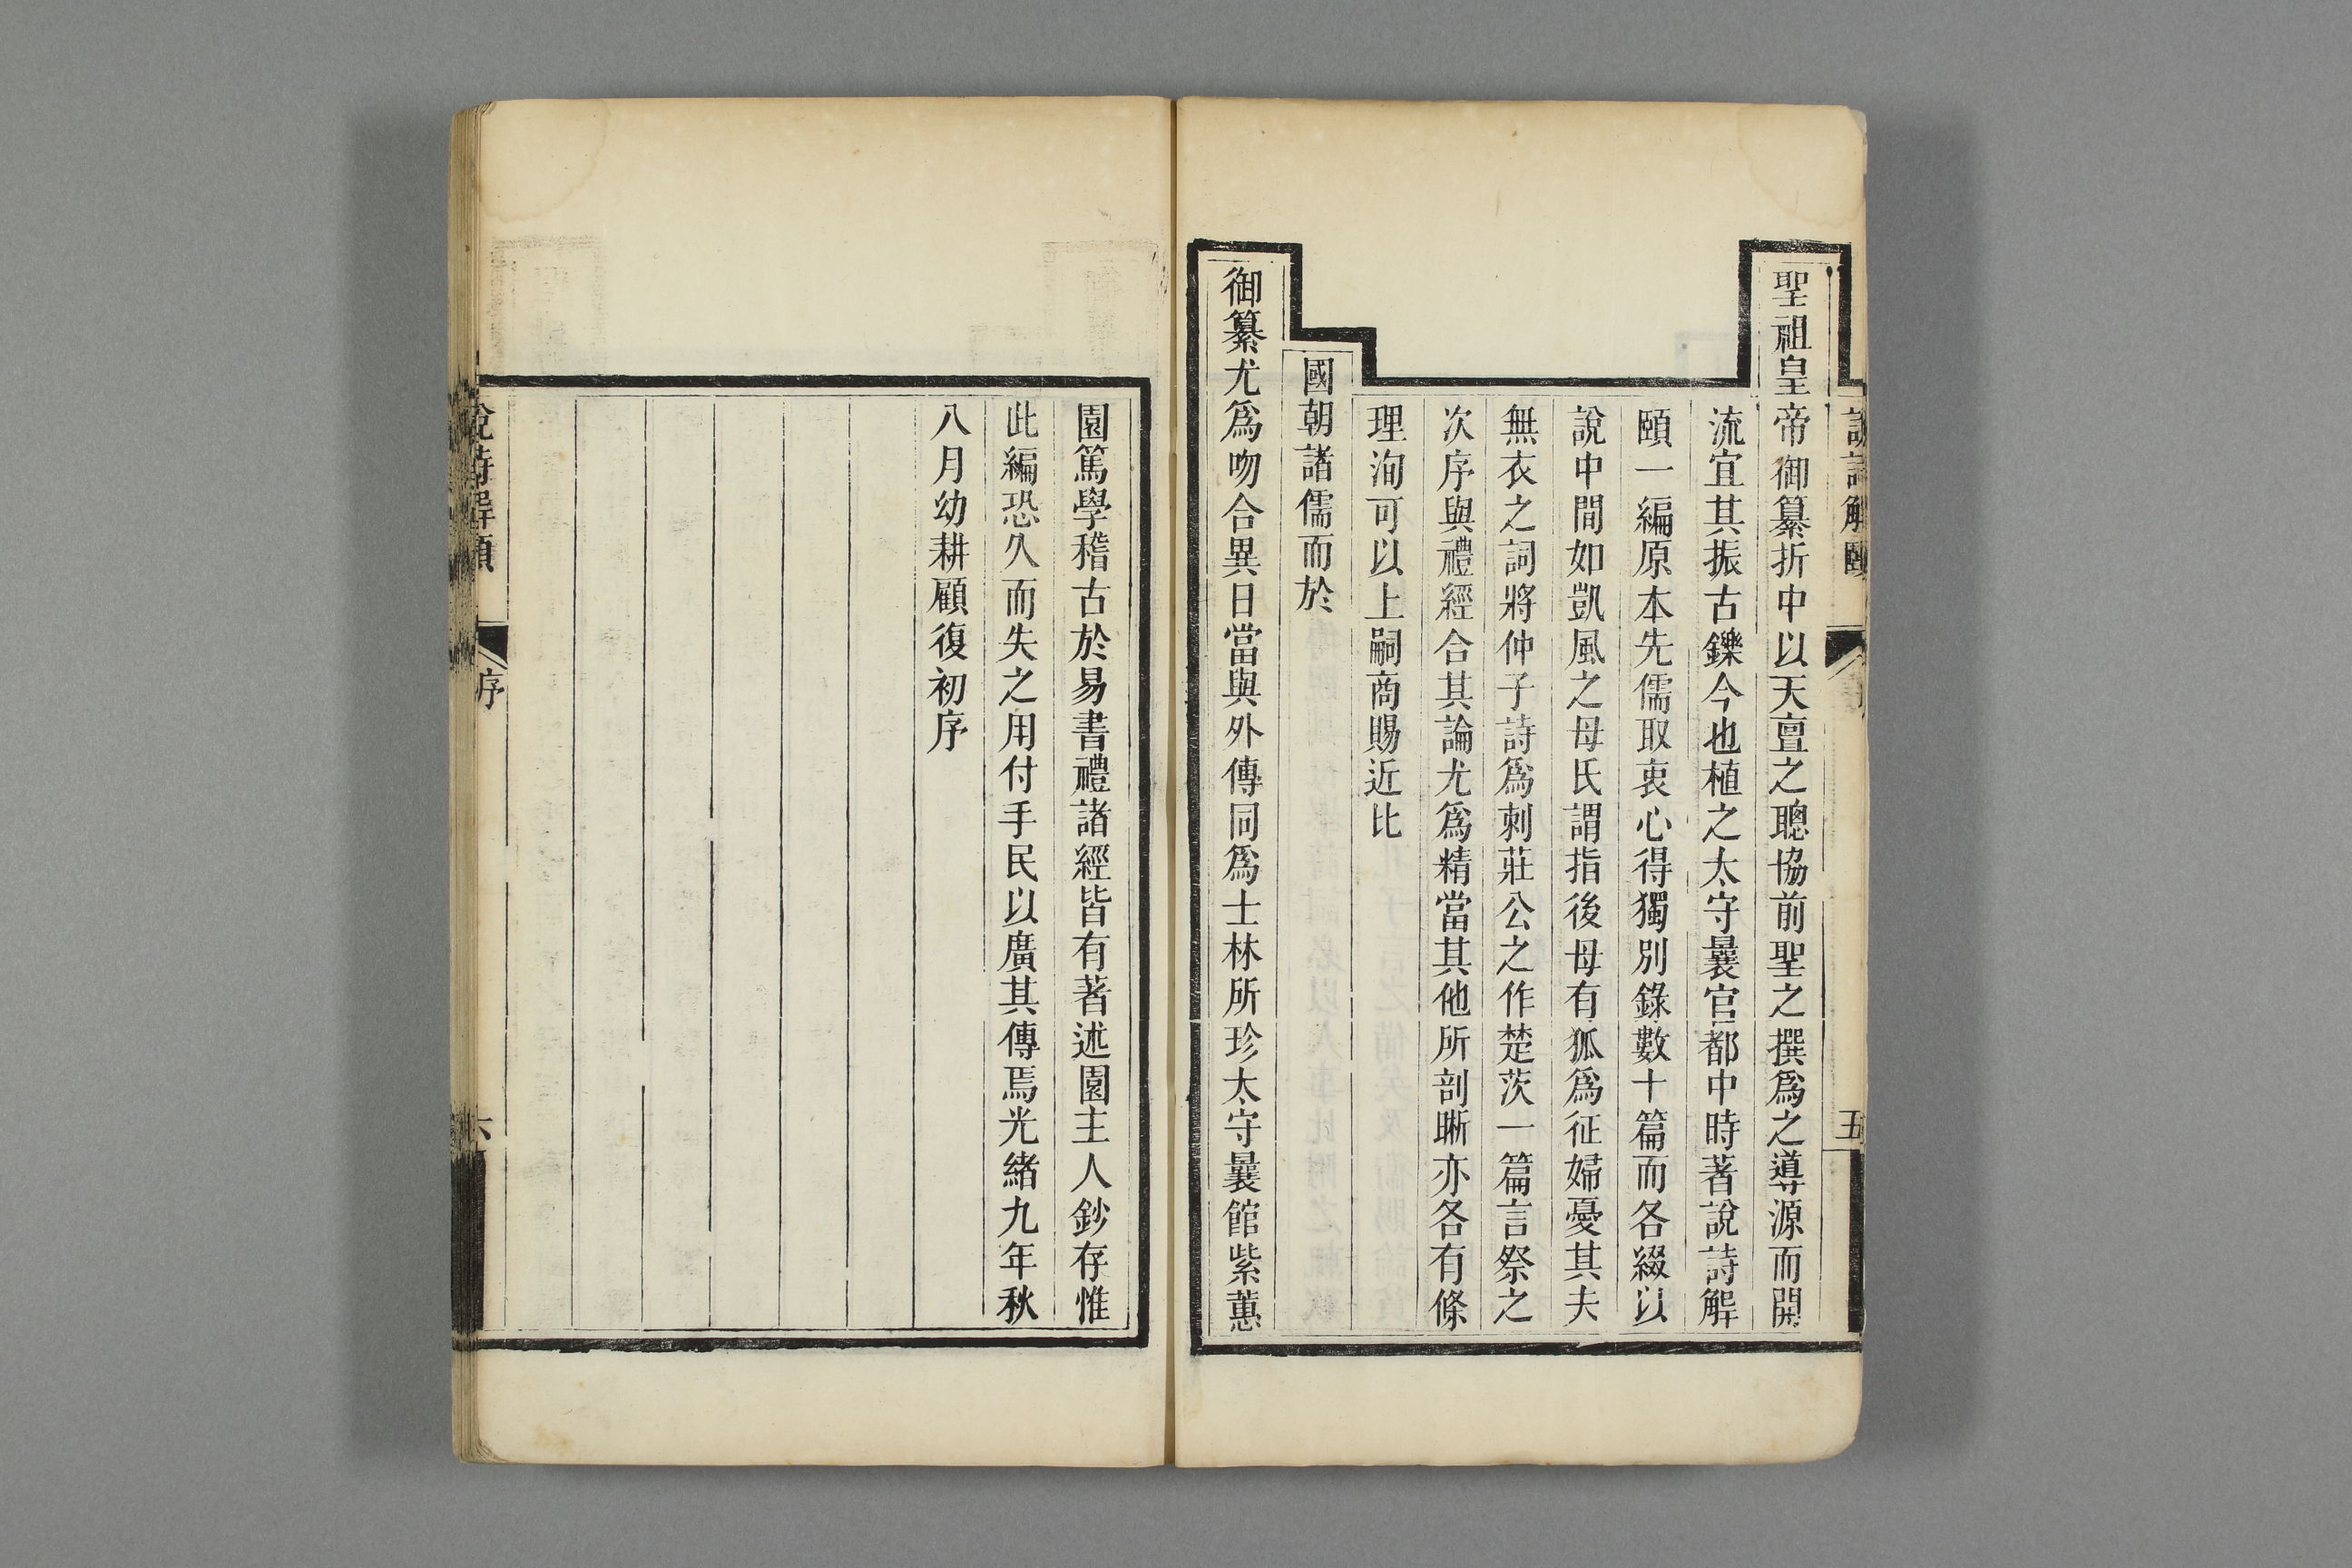 說詩解頤
五
聖祖皇帝御纂折中以天亶之聰協前聖之撰爲之導源而開
流宜其振古鑠今也植之太守曩官都中時著說詩解
頤一編原本先儒取衷心得獨別錄數十篇而各綴以
說中間如凱風之母氏謂指後母有狐爲征婦憂其夫
無衣之詞將仲子詩爲刺莊公之作楚茨一篇言祭之
次序與禮經合其論尤爲精當其他所剖晰亦各有條
理洵可以上嗣商賜近比
國朝諸儒而於
御纂尤爲吻合異日當與外傳同爲士林所珍太守曩館紫蕙
園篤學稽古於易書禮諸經皆有著述園主人鈔存惟
此編恐久而失之用付手民以廣其傳焉光緒九年秋
八月幼耕顧復初序
說詩解頤
序
六